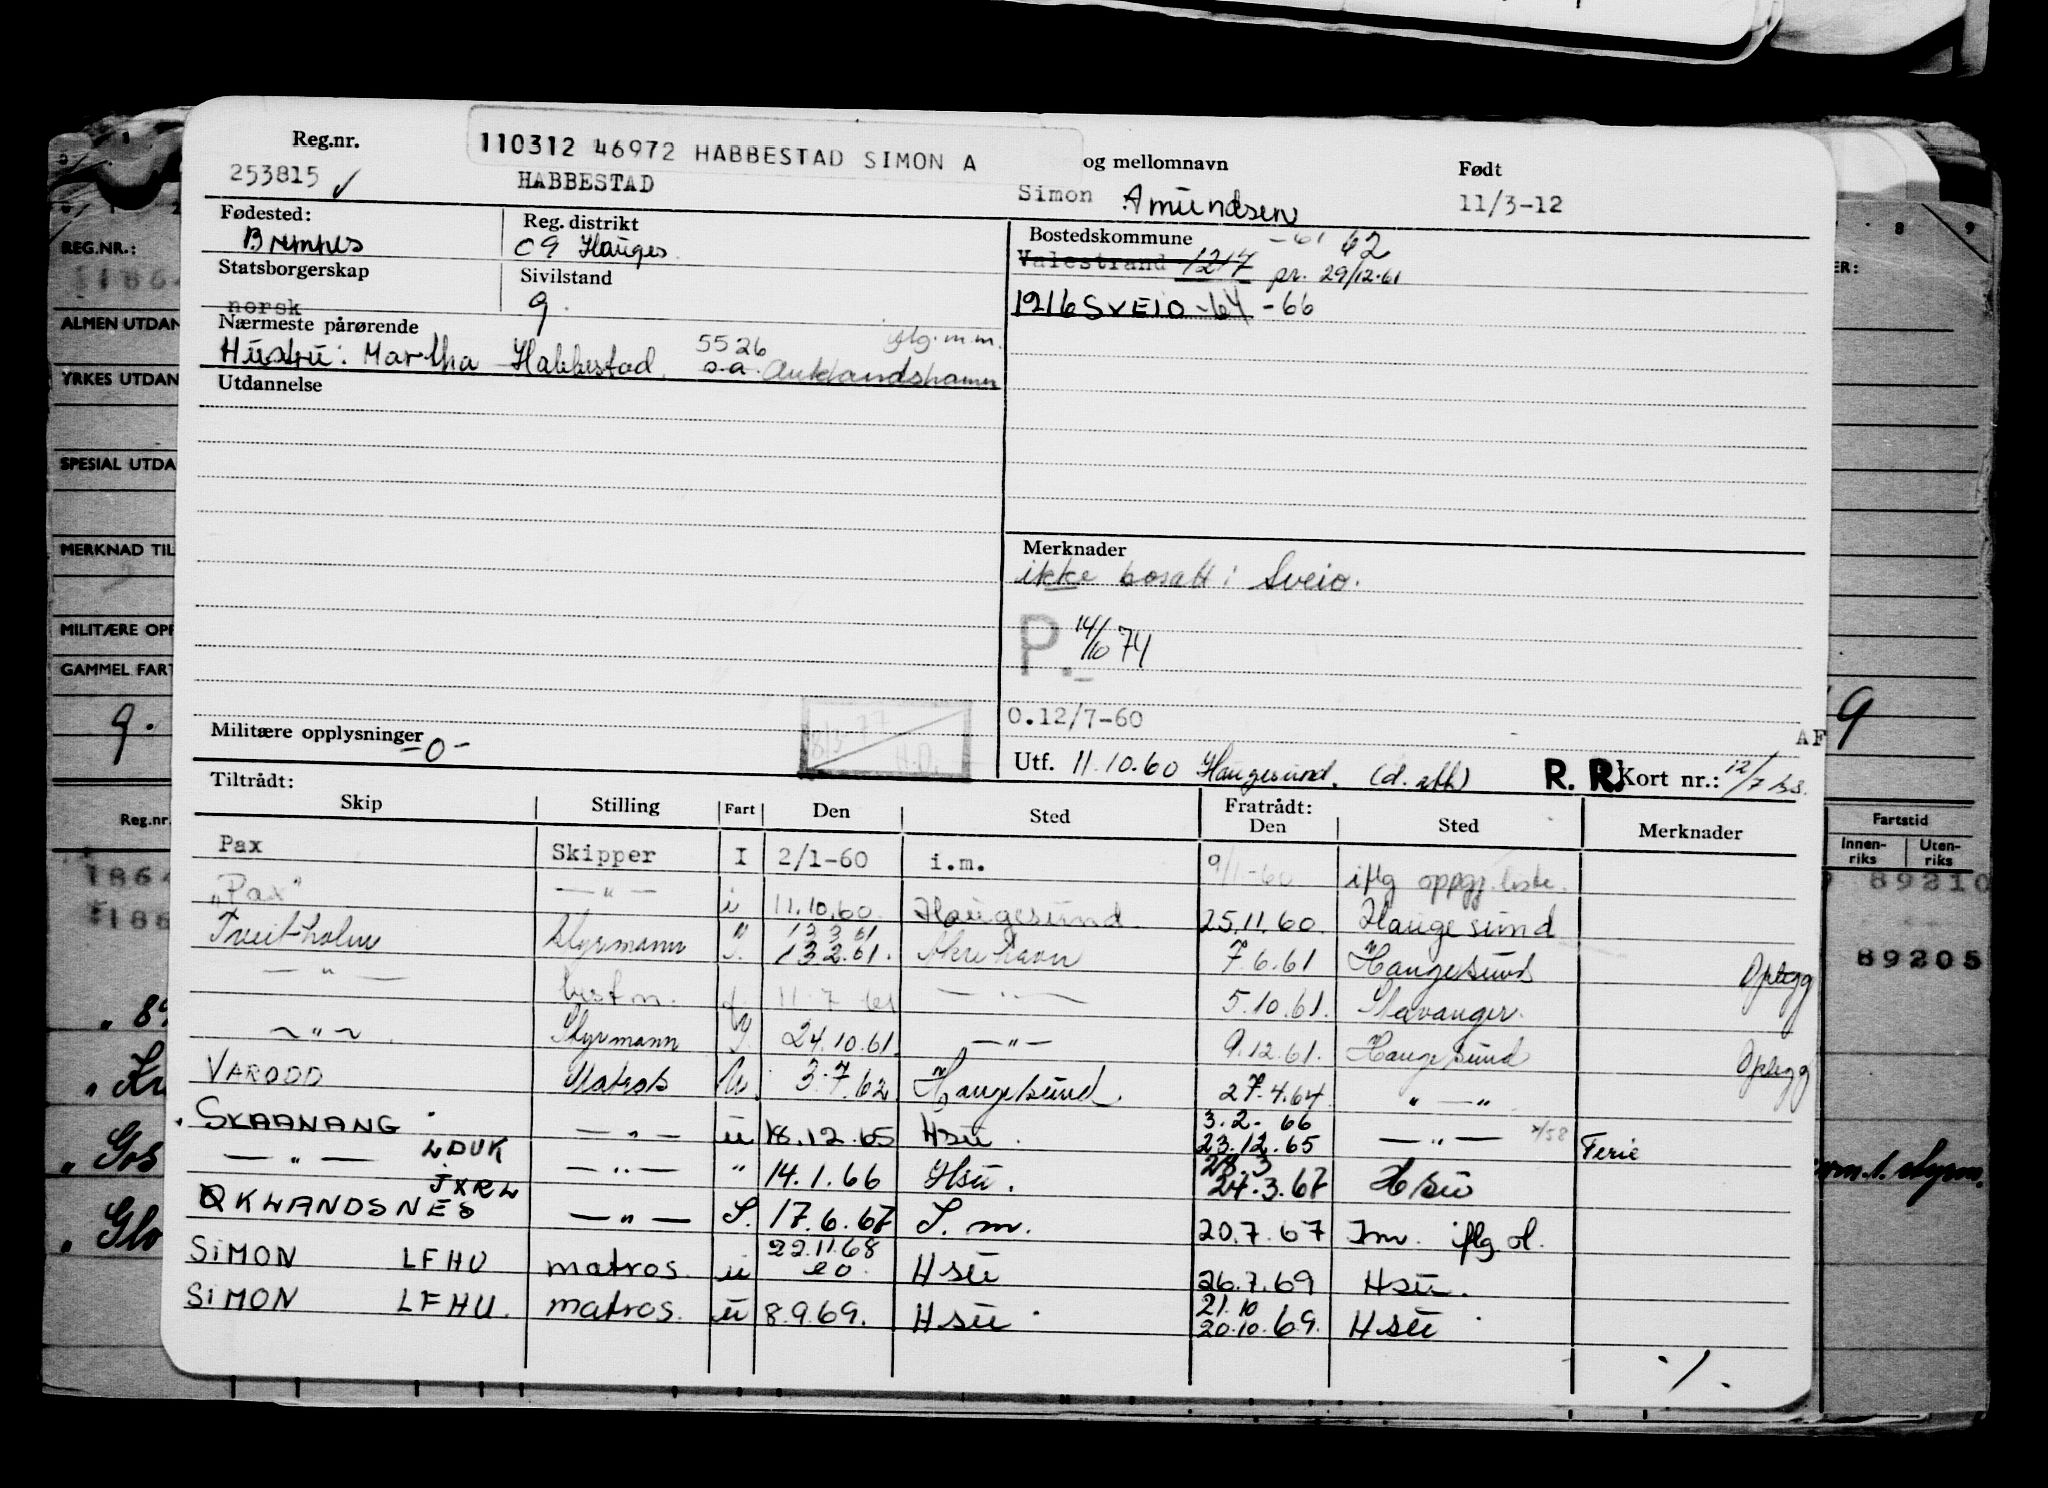 Reg.nr.
110312 46972 HABBESTAD SIMON A
og mellomnavn
Født
253815 ✓
HABBESTAD
Simon Amundsen
11/3-12
Fødested:
Bremnes
Reg. distrikt
09 Hauges
Bostedskommune
-61 62
Valestrand 1217 pr. 29/12-61
Statsborgerskap
norsk
Sivilstand
g.
1216 SVEIO -64 -66
Nærmeste pårørende
Hustru: Martha Habbestad. s.a.
5526 Auklandshamn
iflg. m.m.
Utdannelse
Merknader
ikke bosatt i Sveio.
P. 14/10 74
0.12/7-60
AF
Militære opplysninger
-0-
Utf. 11.10.60 Haugesund.
R. R.
Kort nr.: 12/7
Tiltrådt:
Skip
Stilling
Fart
Den
Sted
Fratrådt:
Den
Sted
Merknader
Pax Skipper I 2/1-60 i.m. 9/1-60 iflg oppgj. liste.
"Pax" — " — i 11.10.60. Haugesund. 25.11.60. Haugesund
Tveitholm Styrmann 13.2.61. Åkrehavn 7.6.61 Haugesund Opplegg
— " — bestm. 11.7.61 — " — 5.10.61. Stavanger.
— " — Styrmann 24.10.61. — " — 9.12.61. Haugesund Opplegg
VARODD Matros U. 3.7.62. Haugesund. 27.4.64. " — "
SKAANANG — " — u 18.12.65 Hsu. 3.2.66 23.12.65 — " — Ferie
— " — LDUK — " — " 14.1.66 Hsu. 28.3 24.3.67 Hsu
ØKLANDSNES JXRL — " — I. 17.6.67 I.m. 20.7.67 Im. iflg. ol.
SIMON LFHU matros. u 22.11.68 20. Hsu 26.7.69 Hsu.
SIMON LFHU. matros. u 8.9.69. Hsu 21.10 20.10.69. Hsu
./.
REG.NR.:
ALMEN UTDAN
YRKES UTDAN
SPESIAL UTDA
MERKNAD TIL
MILITÆRE OPP
GAMMEL FART
g.
Reg.nr.
1864
8 9
ER:
9
Fartstid
Innen-
riks
Uten-
riks
89210
89205